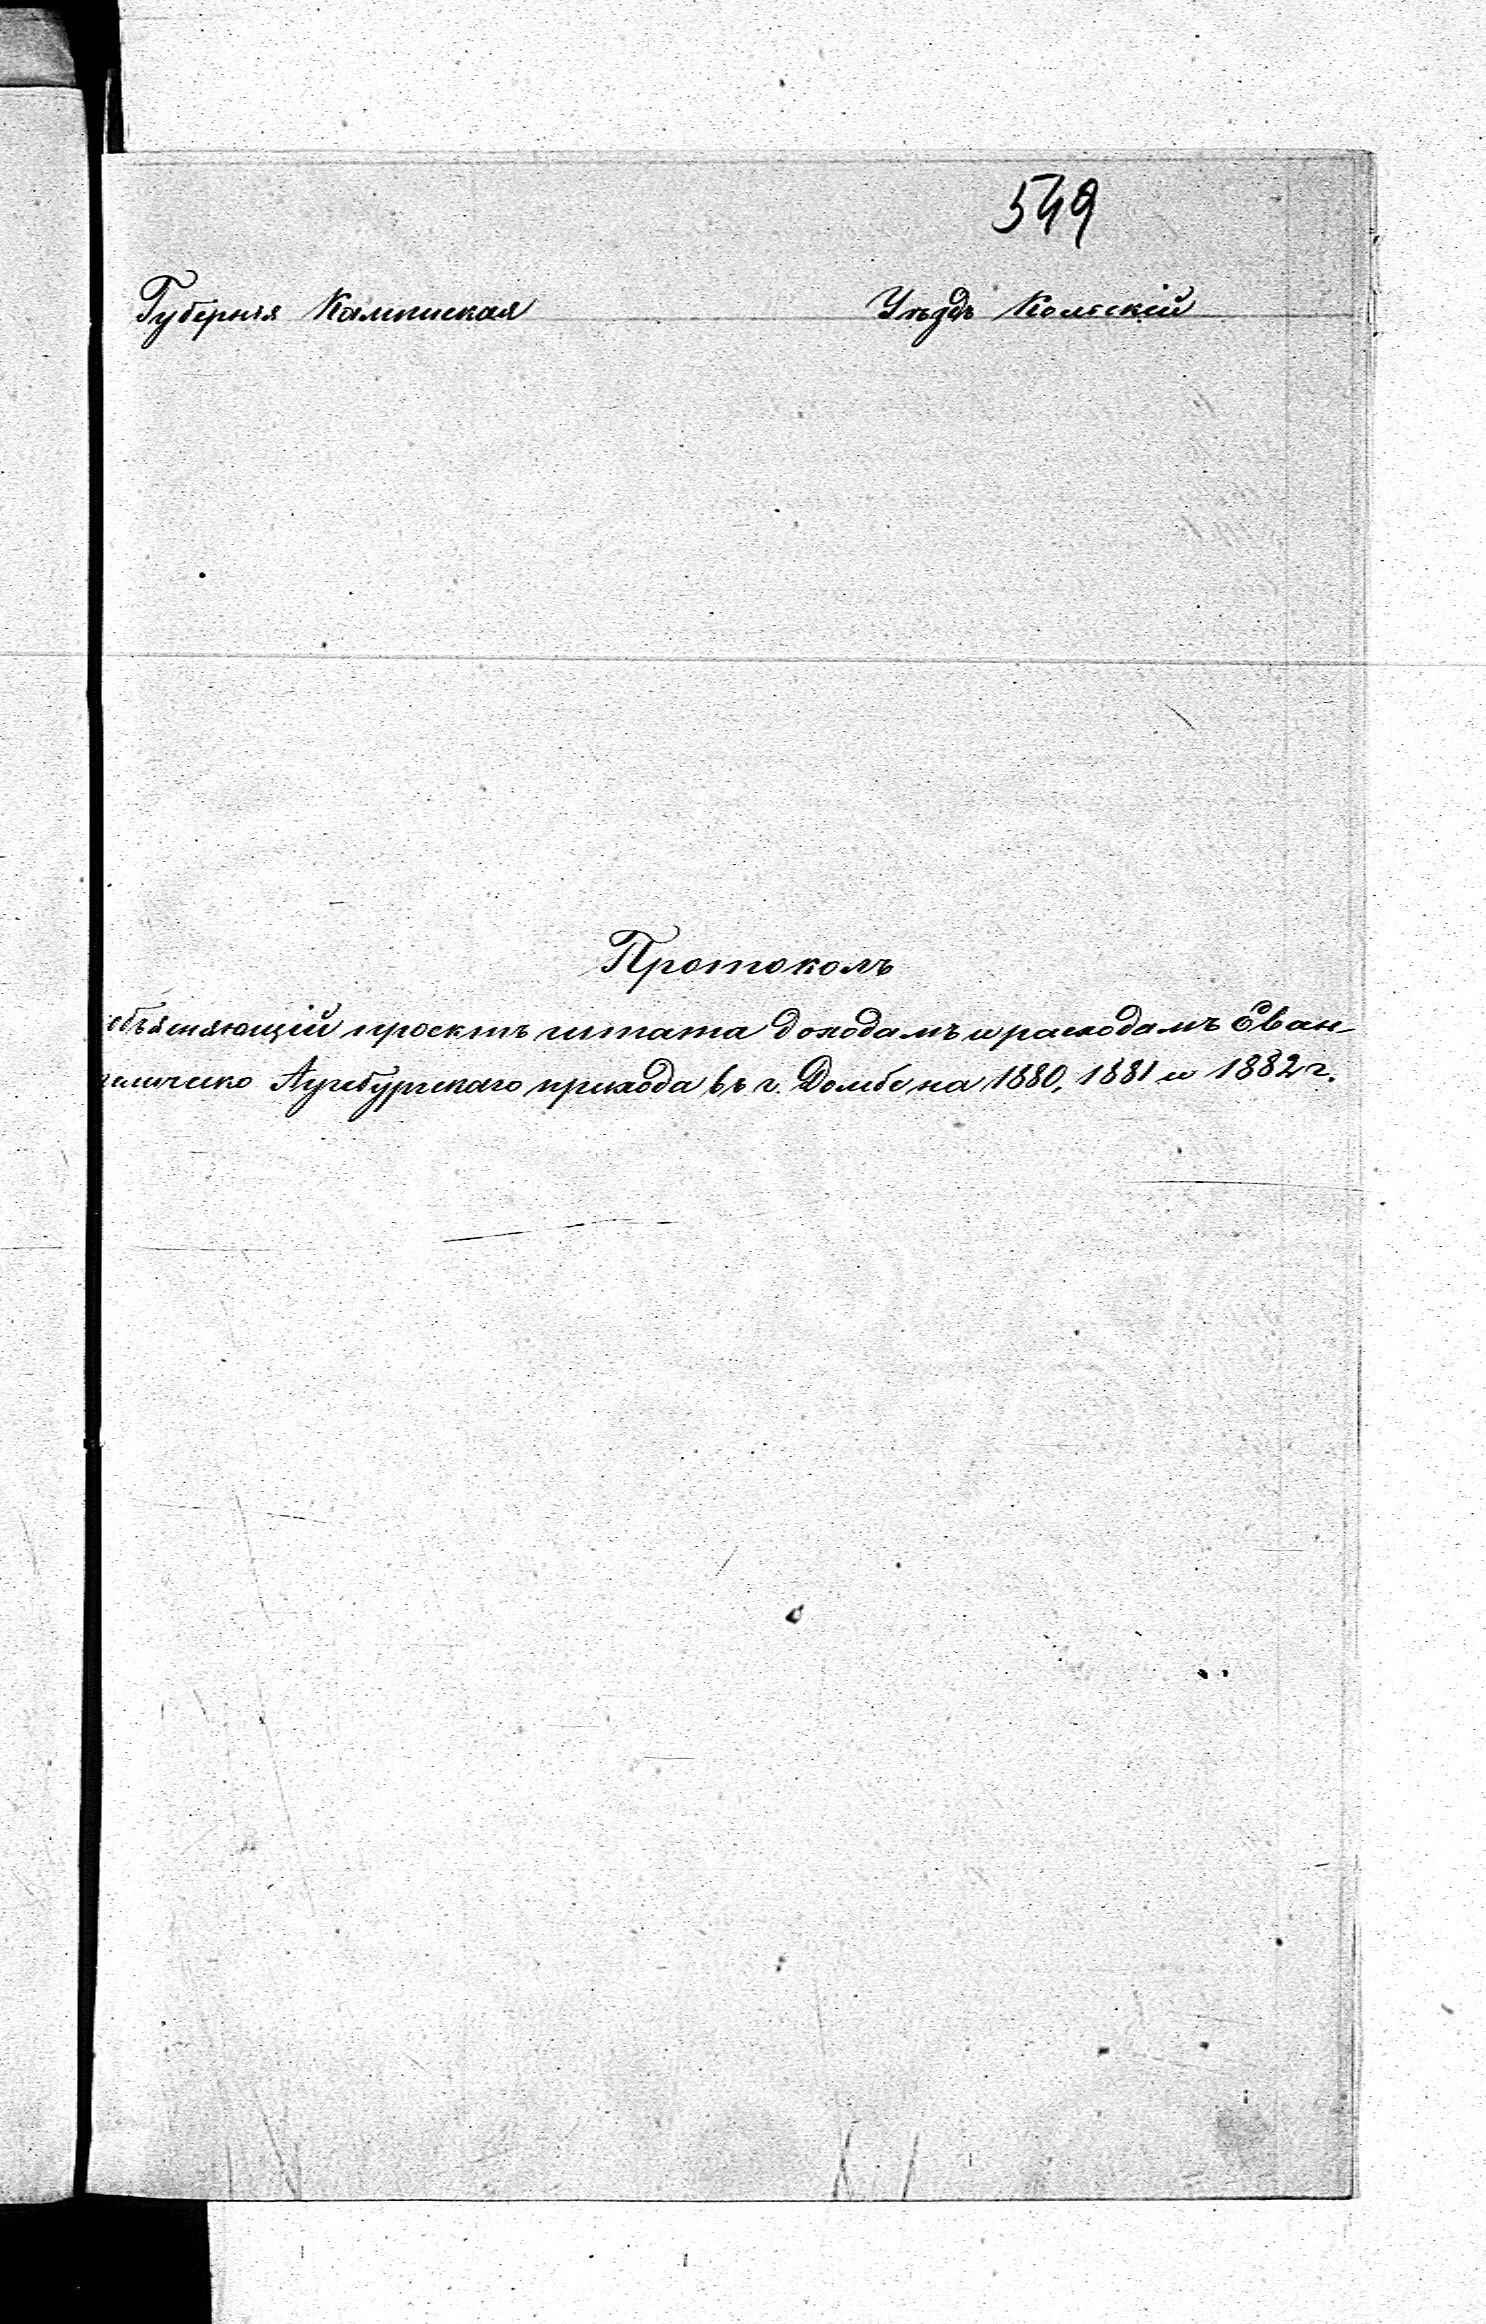 549
Губернія Калишская Уѣздъ Кольскій
Протоколъ
объясняющій проектъ штата доходамъ и расходамъ Еван-
гелическо Аугсбургскаго прихода въ г. Домбе на 1880, 1881 и 1882 г.